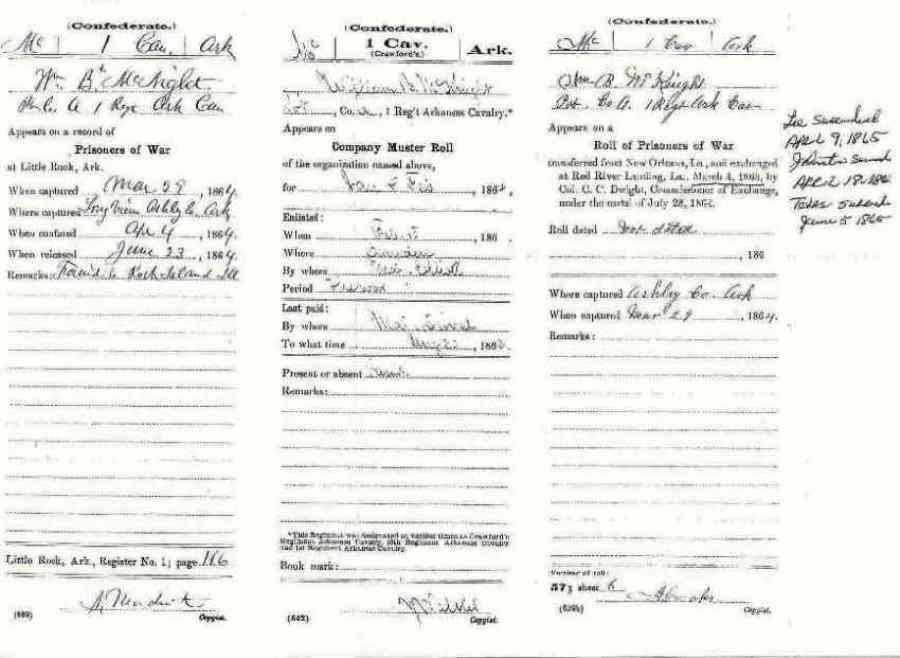 (Confederate.)
Mc | 1 Cav. | Ark
Wm B McNight
Co A 1 Reg Ark Cav
Appears on a record of
Prisoners of War
at Little Rock, Ark.
When captured Mar 29, 1864.
Where captured Ashley Co. Ark
When confined Apr 4, 1864.
When released June 23, 1864.
Remarks: to Rock Island Ill
Little Rock, Ark., Register No. 1; page 116
(689) Copyist.
(Confederate.)
Mc | 1 Cav. (Crawford's.) | Ark.
William B McKnight
Co. , 1 Reg't Arkansas Cavalry.*
Appears on
Company Muster Roll
of the organization named above,
for Jan & Feb, 1864.
Enlisted:
When , 186 .
Where Camden
By whom
Period
Last paid:
By whom Maj.
To what time , 186
Present or absent
Remarks:
*This Regiment was designated at various times as Crawford's
Regiment Arkansas Cavalry, 10th Regiment Arkansas Cavalry
and 1st Regiment Arkansas Cavalry.
Book mark:
(642) Copyist.
(Confederate.)
Mc | 1 Cav | Ark
Wm. B. McKnight
Pvt. Co A. 1 Regt Ark Cav
Appears on a
Roll of Prisoners of War
transferred from New Orleans, La., and exchanged
at Red River Landing, La., March 4, 1865, by
Col. C. C. Dwight, Commissioner of Exchange,
under the cartel of July 22, 1862.
Roll dated not dated
, 186
Where captured Ashley Co. Ark
When captured Mar 29, 1864.
Remarks:
Number of roll:
573 sheet 6
(639b) Copyist.
Lee Surrendered
April 9, 1865
Johnston Surrend
April 18, 186
Texas Surrend
June 5 1865